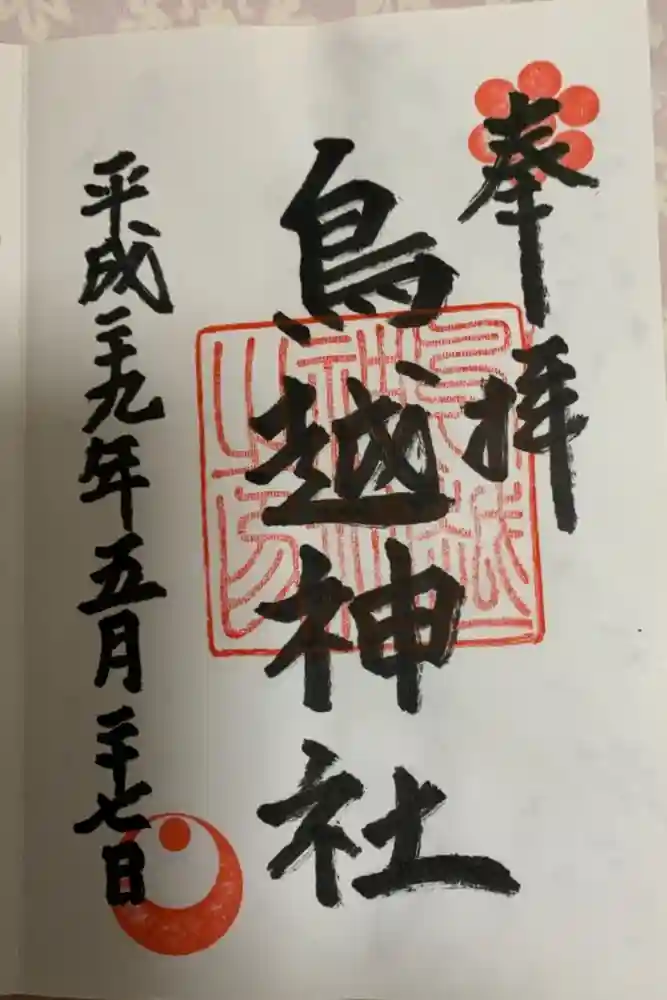 奉拝
鳥越神社
平成二十九年五月二十七日